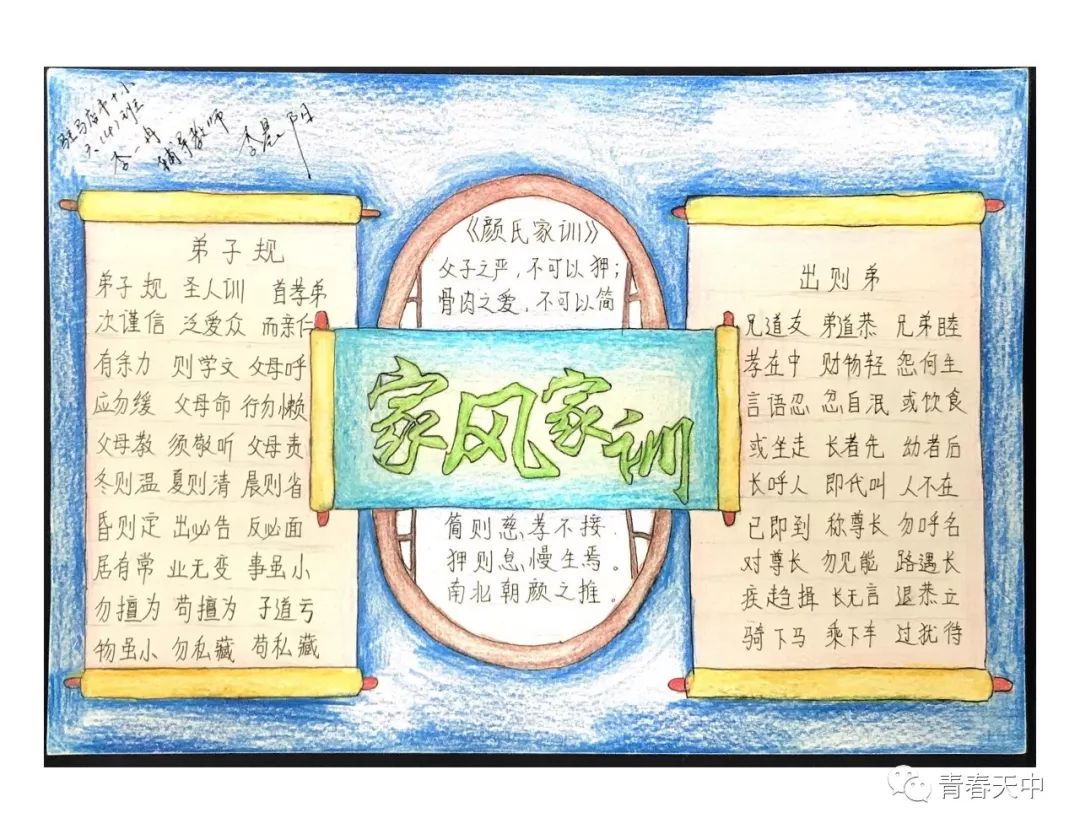 驻马店市十小
六（4）班
李一冉
辅导教师 李晨阳
弟子规
弟子规 圣人训 首孝弟
次谨信 泛爱众 而亲仁
有余力 则学文 父母呼
应勿缓 父母命 行勿懒
父母教 须敬听 父母责
冬则温 夏则清 晨则省
昏则定 出必告 反必面
居有常 业无变 事虽小
勿擅为 苟擅为 子道亏
物虽小 勿私藏 苟私藏
《颜氏家训》
父子之严，不可以狎；
骨肉之爱，不可以简
家风家训
简则慈孝不接.
狎则怠慢生焉。
南北朝颜之推。
出则弟
兄道友 弟道恭 兄弟睦
孝在中 财物轻 怨何生
言语忍 忿自泯 或饮食
或坐走 长者先 幼者后
长呼人 即代叫 人不在
已即到 称尊长 勿呼名
对尊长 勿见能 路遇长
疾趋揖 长无言 退恭立
骑下马 乘下车 过犹待
青春天中